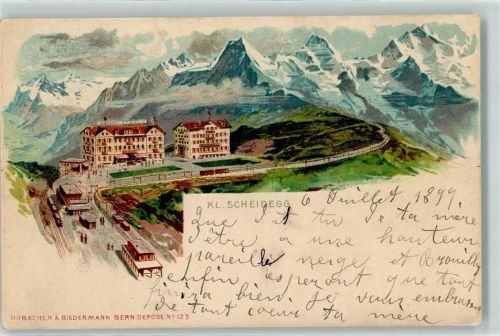 KL. SCHEIDEGG
6 Juillet 1899
Que dit tu de ta mere
d'être a une hauteur
pareille neige et Brouill
enfin esperont que tout
finira bien je vous embrasse
de tout coeur ta mere
HUBACHER & BIEDERMANN BERN. DEPOSE No 123